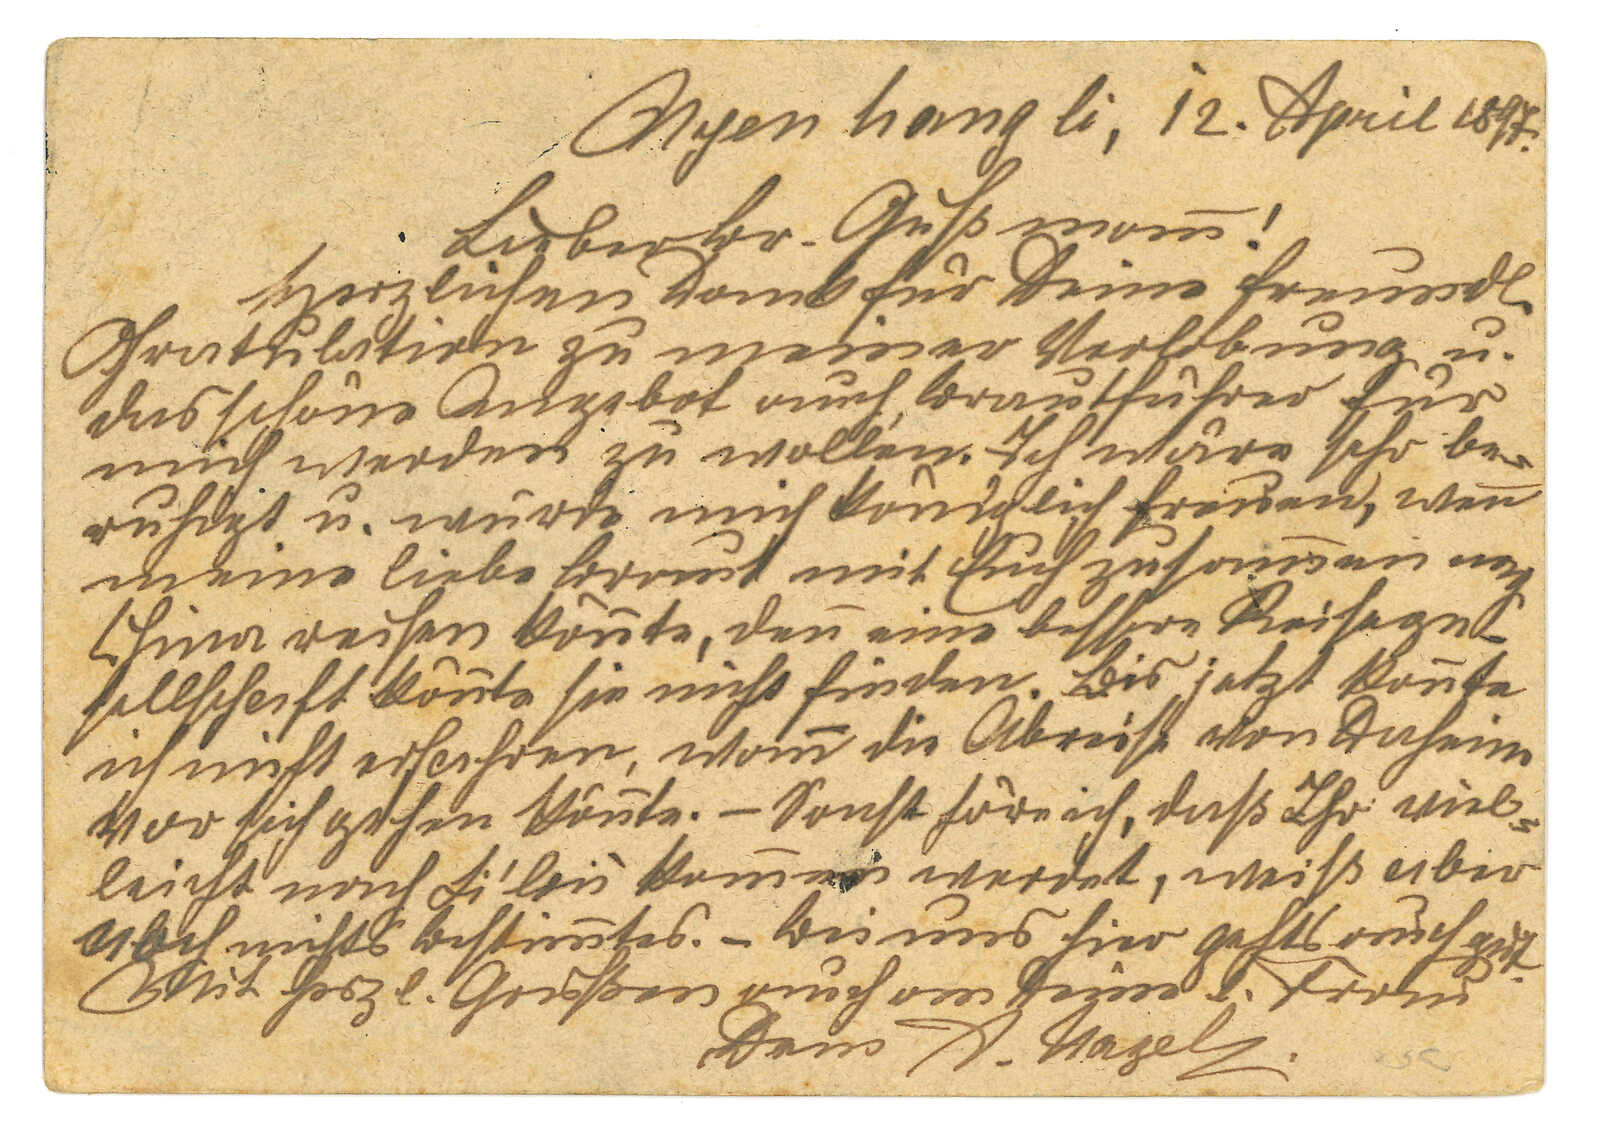 Nyen hang li, 12. April 1897.
Lieber Br. Gußmann!
Herzlichen Dank für Deine freundl.
Gratulation zu meiner Verlobung u.
das schöne Angebot auch Brautführer für
mich werden zu wollen. Ich wäre sehr be-
ruhigt u. würde mich königlich freuen, wenn
meine liebe Braut mit Euch zusammen nach
China reisen könnte, denn eine bessere Reisege-
sellschaft könnte sie nicht finden. Bis jetzt konnte
ich nicht erfahren, wann die Abreise von Daheim
vor sich gehen könnte. – Sonst höre ich, daß Ihr viel-
leicht nach Li'long kommen werdet, weiß aber
noch nichts bestimmtes. – Bei uns hier gehts auch gut.
Mit herzl. Grüßen auch an Deine l. Frau
Dein A. Nagel.